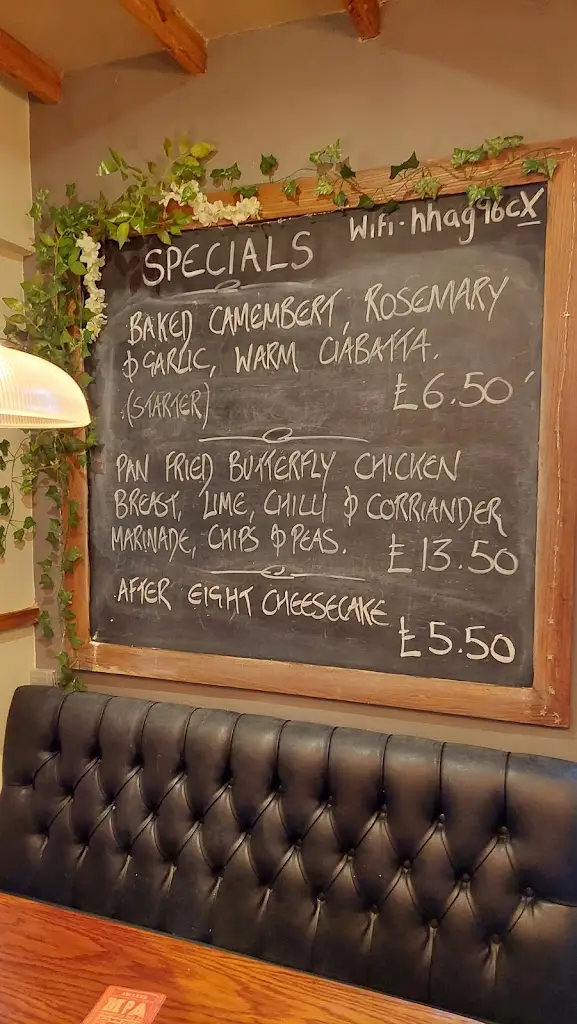 Wifi-hhag96cX
SPECIALS
BAKED CAMEMBERT, ROSEMARY
& GARLIC, WARM CIABATTA.
(STARTER) £6.50
PAN FRIED BUTTERFLY CHICKEN
BREAST, LIME, CHILLI & CORRIANDER
MARINADE, CHIPS & PEAS. £13.50
AFTER EIGHT CHEESECAKE
£5.50